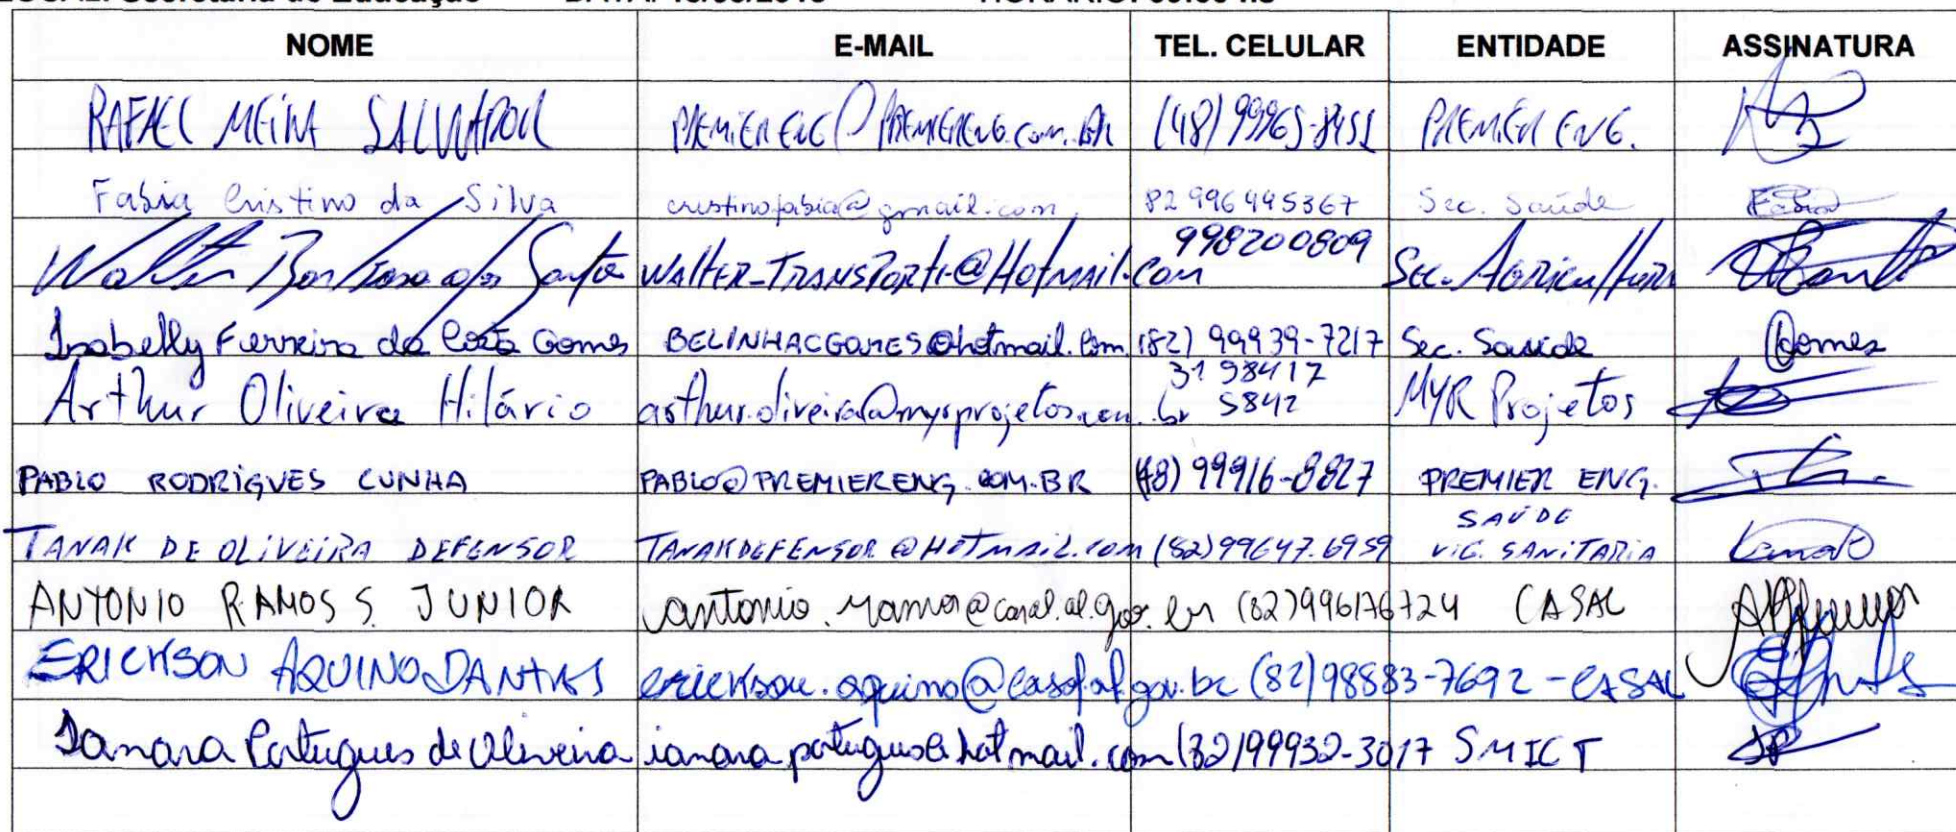 Secretaria de Educação
NOME E-MAIL TEL. CELULAR ENTIDADE ASSINATURA
RAFAEL MEIRA SALVADOR PREMIERENG@PREMIERENG.COM.BR (48) 99965-8451 PREMIER ENG.
Fabia Cristino da Silva cristinofabia@gmail.com 82 996445367 Sec. Saúde Fabia
Walter Barbosa dos Santos WALTER-TRANSPORTE@HOTMAIL.COM 998200809 Sec. Agricultura
Isabelly Ferreira da Costa Gomes BELINHACGOMES@hotmail.com (82) 99939-7217 Sec. Saúde Gomes
Arthur Oliveira Hilário arthur.oliveira@myrprojetos.com.br 31 98417 5842 MYR Projetos
PABLO RODRIGUES CUNHA PABLO@PREMIERENG.COM.BR (48) 99916-8827 PREMIER ENG.
TANAK DE OLIVEIRA DEFENSOR TANAKDEFENSOR@HOTMAIL.COM (82) 99647.6959 SAÚDE VIG. SANITARIA
ANTONIO RAMOS S. JUNIOR antonio.ramos@casal.al.gov.br (82) 996176724 CASAL
ERICKSON AQUINO DANTAS erickson.aquino@casal.al.gov.br (82) 98883-7692 - CASAL
Ianara Portugues de Oliveira ianara.portugues@hotmail.com (82) 99932-3017 SMICT